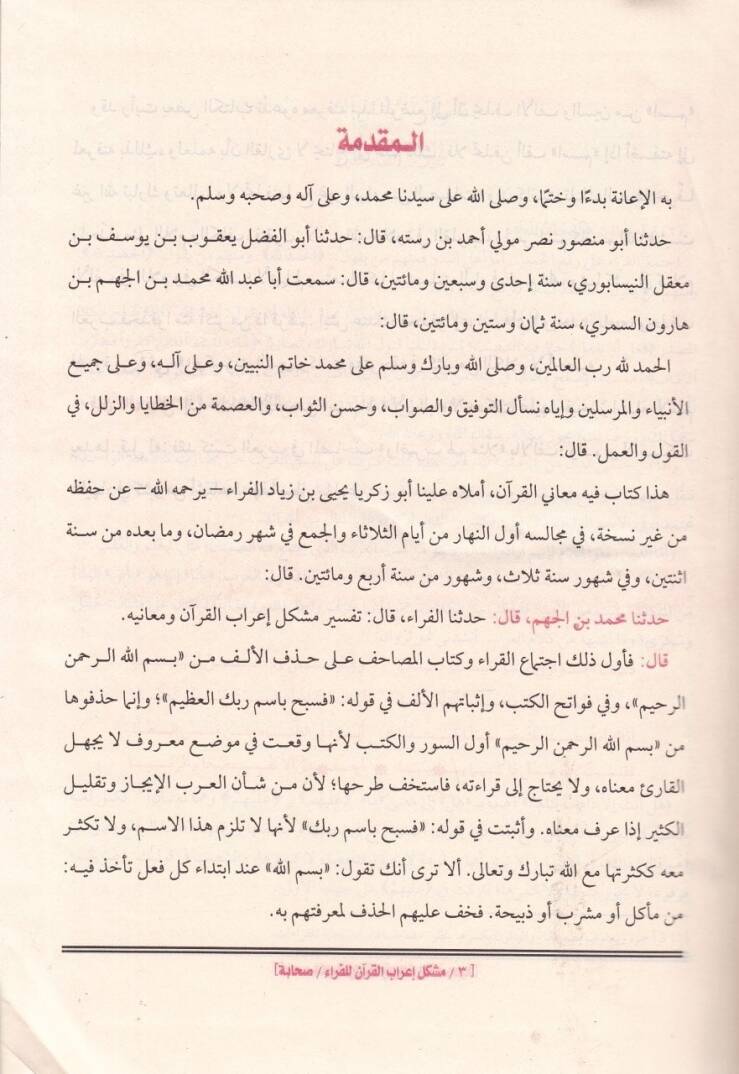 المقدمة
به الإعانة بدءًا وختمًا، وصلى الله على سيدنا محمد، وعلى آله وصحبه وسلم.
حدثنا أبو منصور نصر مولي أحمد بن رسته، قال: حدثنا أبو الفضل يعقوب بن يوسف بن
معقل النيسابوري، سنة إحدى وسبعين ومائتين، قال: سمعت أبا عبد الله محمد بن الجهم بن
هارون السمري، سنة ثمان وستين ومائتين، قال:
الحمد لله رب العالمين، وصلى الله وبارك وسلم على محمد خاتم النبيين، وعلى آله، وعلى جميع
الأنبياء والمرسلين وإياه نسأل التوفيق والصواب، وحسن الثواب، والعصمة من الخطايا والزلل، في
القول والعمل. قال:
هذا كتاب فيه معاني القرآن، أملاه علينا أبو زكريا يحيى بن زياد الفراء – يرحمه الله – عن حفظه
من غير نسخة، في مجالسه أول النهار من أيام الثلاثاء والجمع في شهر رمضان، وما بعده من سنة
اثنتين، وفي شهور سنة ثلاث، وشهور من سنة أربع ومائتين. قال:
حدثنا محمد بن الجهم، قال: حدثنا الفراء، قال: تفسير مشكل إعراب القرآن ومعانيه.
قال: فأول ذلك اجتماع القراء وكتاب المصاحف على حذف الألف من «بسم الله الرحمن
الرحيم»، وفي فواتح الكتب، وإثباتهم الألف في قوله: «فسبح باسم ربك العظيم»؛ وإنما حذفوها
من «بسم الله الرحمن الرحيم» أول السور والكتب لأنها وقعت في موضع معروف لا يجهل
القارئ معناه، ولا يحتاج إلى قراءته، فاستخف طرحها؛ لأن من شأن العرب الإيجاز وتقليل
الكثير إذا عرف معناه. وأثبتت في قوله: «فسبح باسم ربك» لأنها لا تلزم هذا الاسم، ولا تكثر
معه ككثرتها مع الله تبارك وتعالى. ألا ترى أنك تقول: «بسم الله» عند ابتداء كل فعل تأخذ فيه:
من مأكل أو مشرب أو ذبيحة. فخف عليهم الحذف لمعرفتهم به.
[٣ / مشكل إعراب القرآن للفراء / صحابة]